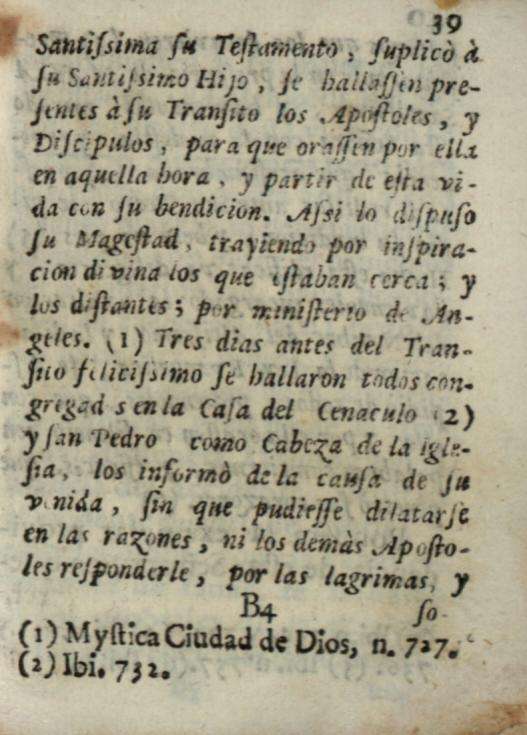 39
Santiſsima ſu Teſtamento, ſuplicò à
ſu Santiſsimo Hijo, ſe hallaſſen pre-
ſentes à ſu Tranſito los Apoſtoles, y
Diſcipulos, para que oraſſen por ella
en aquella hora, y partir de eſta vi-
da con ſu bendicion. Aſsi lo diſpuſo
ſu Mageſtad, trayiendo por inſpira-
cion divina los que eſtaban cerca; y
los diſtantes; por miniſterio de An-
geles. (1) Tres dias antes del Tran-
ſito feliciſsimo ſe hallaron todos con-
gregad s en la Caſa del Cenaculo (2)
y ſan Pedro como Cabeza de la Igle-
ſia, los informò de la cauſa de ſu
venida, ſin que pudieſſe dilatarſe
en las razones, ni los demàs Apoſto-
les reſponderle, por las lagrimas, y
B4 ſo-
(1) Myſtica Ciudad de Dios, n. 727.
(2) Ibi. 732.